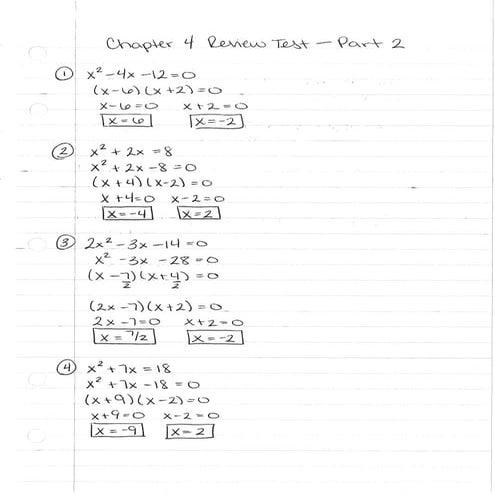 Chapter 4 Review Test - Part 2
① x² - 4x - 12 = 0
(x-6)(x+2) = 0
x-6=0 x+2=0
x=6 x=-2
② x² + 2x = 8
x² + 2x - 8 = 0
(x+4)(x-2) = 0
x+4=0 x-2=0
x=-4 x=2
③ 2x² - 3x - 14 = 0
x² - 3x - 28 = 0
(x - 7/2)(x + 4/2) = 0
(2x-7)(x+2) = 0
2x-7=0 x+2=0
x = 7/2 x=-2
④ x² + 7x = 18
x² + 7x - 18 = 0
(x+9)(x-2) = 0
x+9=0 x-2=0
x=-9 x=2